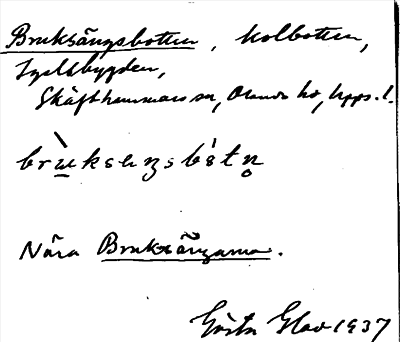 Bruksängsbotten, kolbotten,
Tjeltbygden,
Skäfthammars sn, Olands hd, Upps. l.
Nära Bruksängarna.
Gösta Glav 1937